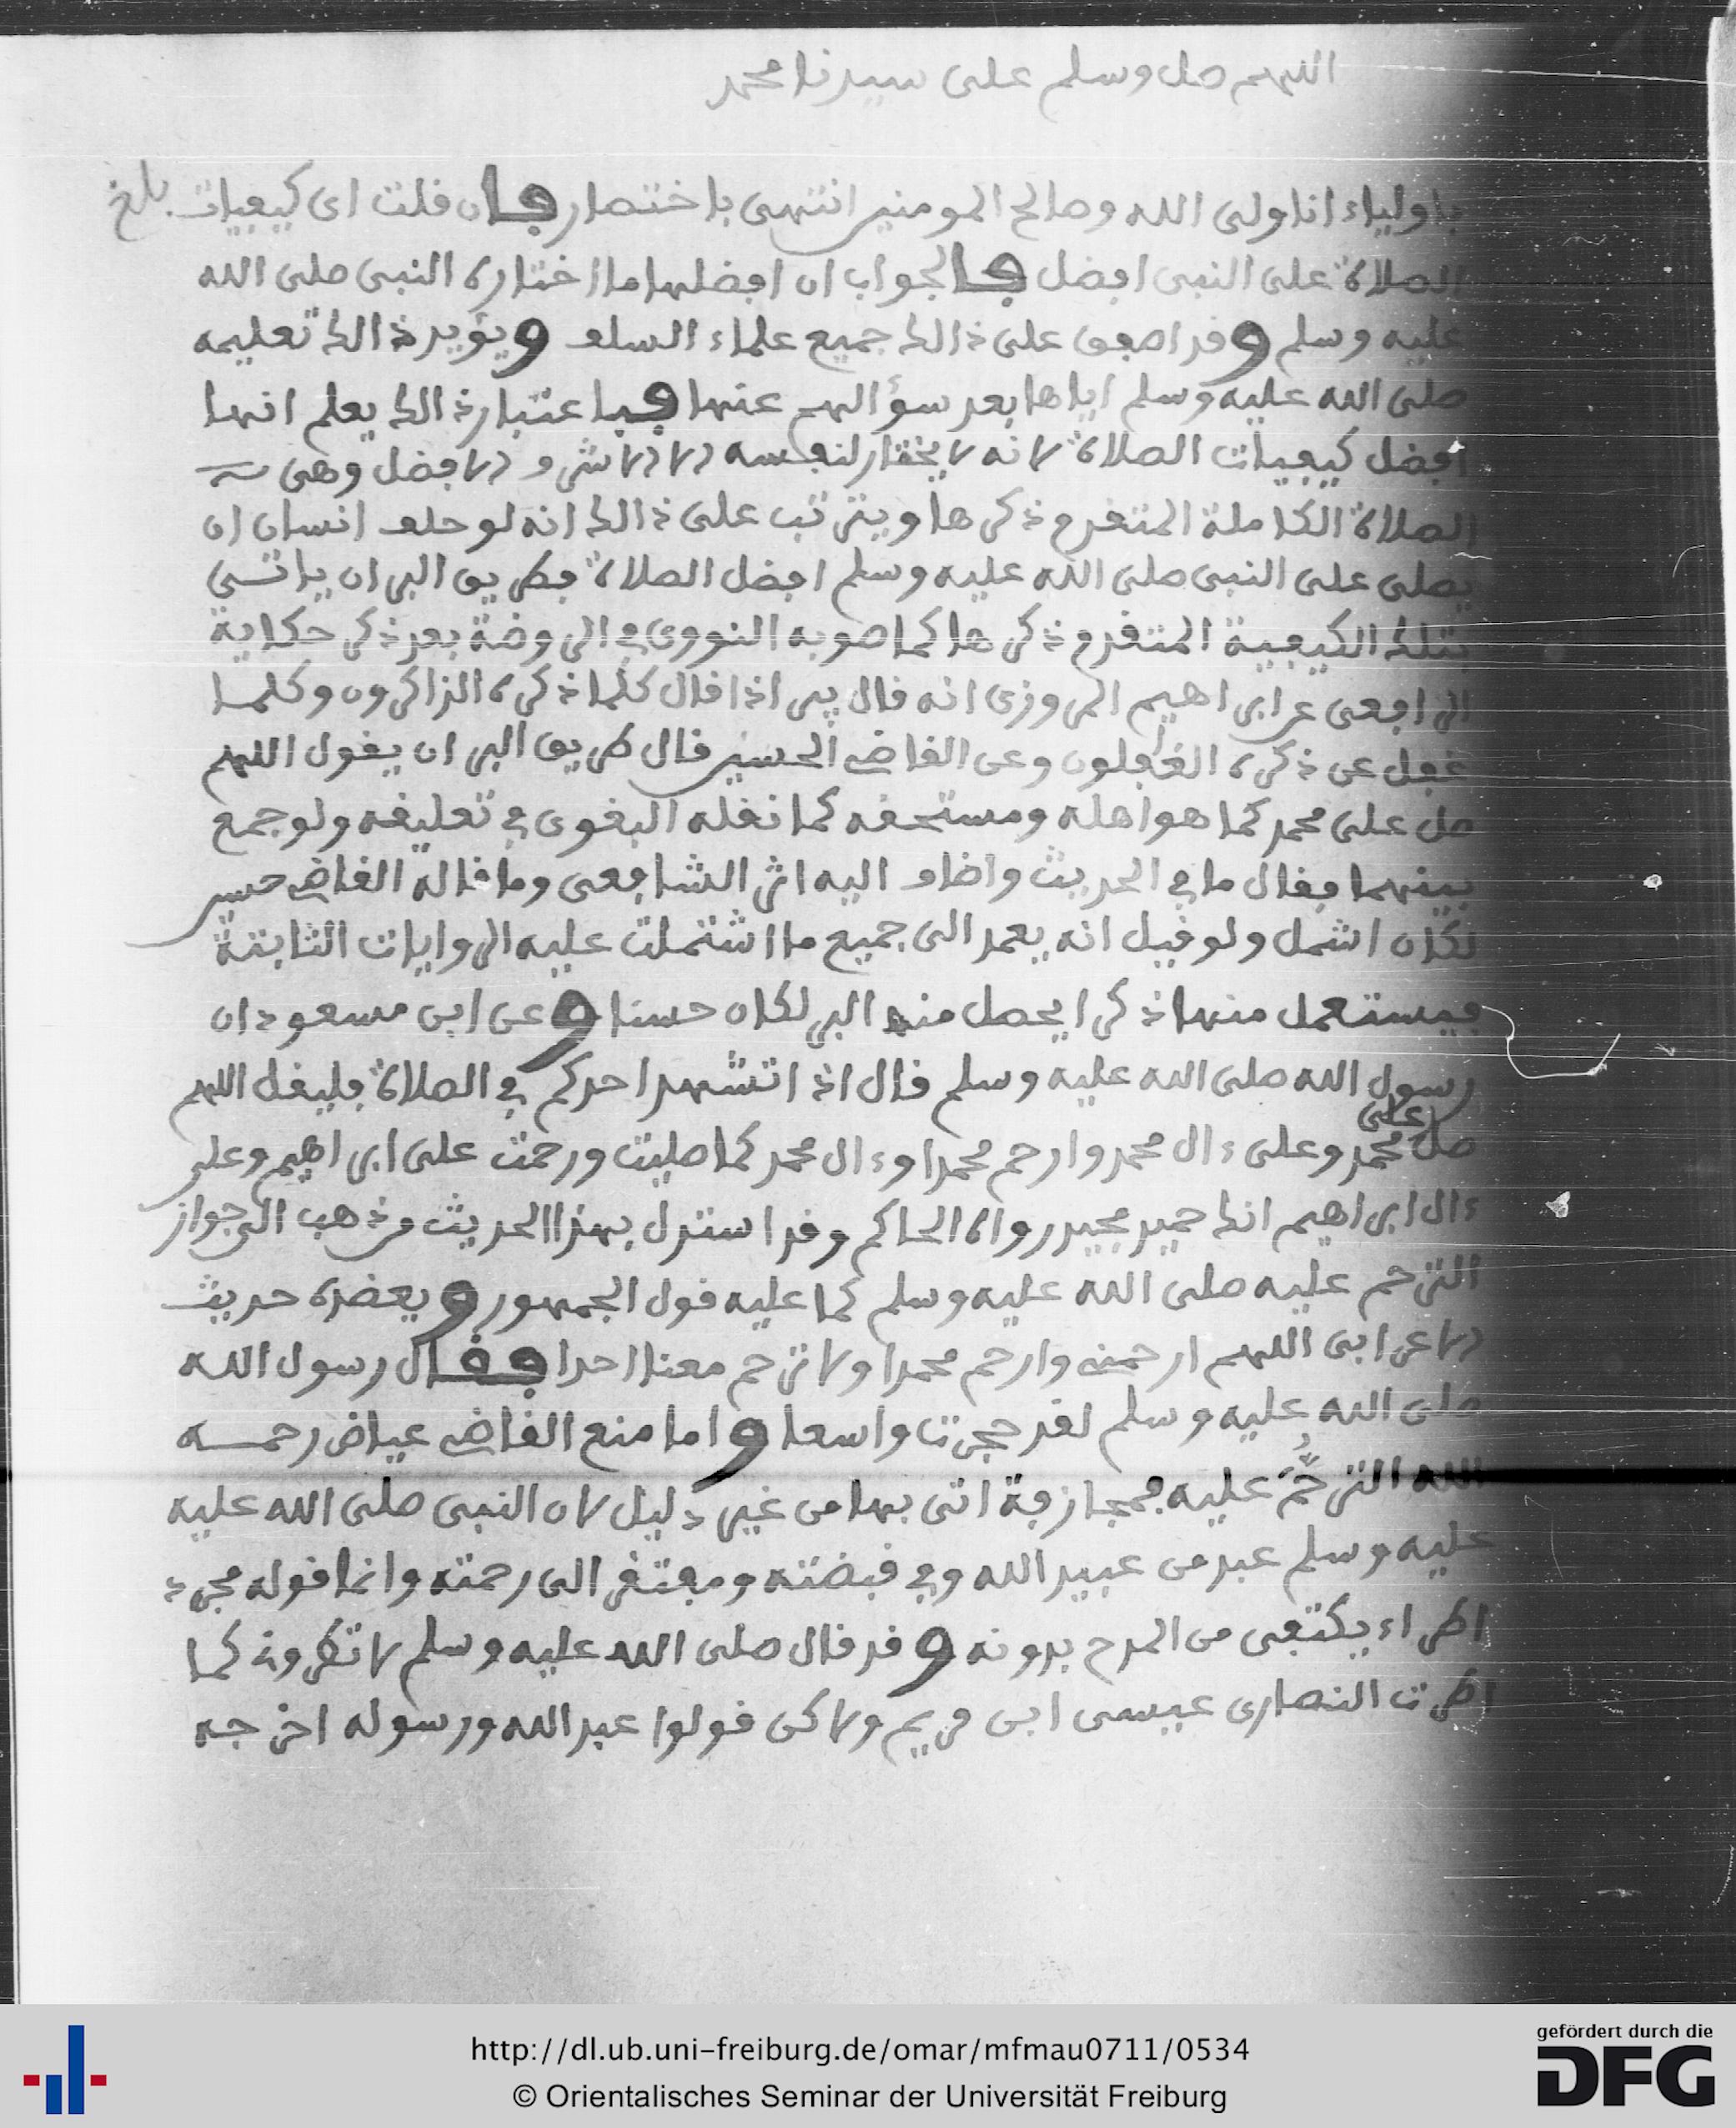 اللهم صل وسلم على سيدنا محمد
باولياء انا ولى الله وصالح المومنين انتهى باختصار فان قلت اى كيفيات بلغ
الصلاة على النبى افضل فالجواب ان افضلها ما اختاره النبى صلى الله
عليه وسلم وقد اصفق على ذالك جميع علماء السلف ويؤيد ذالك تعليمه
صلى الله عليه وسلم اياها بعد سؤالهم عنها فباعتبار ذالك يعلم انها
افضل كيفيات الصلاة لانه لا يختار لنفسه الا الاشرف الافضل وهى
الصلاة الكاملة المتقدم ذكرها ويترتب على ذالك انه لو حلف انسان ان
يصلى على النبى صلى الله عليه وسلم افضل الصلاة فطريق البر ان ياتى
بتلك الكيفية المتقدم ذكرها كما صوبه النووى فى الروضة بعد ذكر حكاية
الرافعى عن ابراهيم المروزى انه قال يبر اذا قال كلما ذكره الذاكرون وكلما
غفل عن ذكره الغافلون وعن القاضى الحسين قال طريق البر ان يقول اللهم
صل على محمد كما هو اهله ومستحقه كما نقله البغوى فى تعليقه ولو جمع
بينهما فقال ما فى الحديث واضاف اليه اثر الشافعى وما قاله القاضى حسين
لكان اشمل ولو قيل انه يعمد الى جميع ما اشتملت عليه الروايات الثابتة
فيستعمل منها ذكرا يحصل منه البر لكان حسنا وعن ابن مسعود ان
رسول الله صلى الله عليه وسلم قال اذا تشهد احدكم فى الصلاة فليقل اللهم
صل على محمد وعلى ءال محمد وارحم محمدا وءال محمد كما صليت ورحمت على ابراهيم وعلى
ءال ابراهيم انك حميد مجيد رواه الحاكم وقد استدل بهذا الحديث من ذهب الى جواز
الترحم عليه صلى الله عليه وسلم كما عليه قول الجمهور ويعضده حديث
الاعرابى اللهم ارحمنى وارحم محمدا ولا ترحم معنا احدا فقال رسول الله
صلى الله عليه وسلم لقد حجرت واسعا واما منع القاضى عياض رحمه
الله الترحم عليه فمجازفة اتى بها من غير دليل لان النبى صلى الله عليه
عليه وسلم عبد من عبيد الله وفى قبضته ومفتقر الى رحمته وانما قوله مجرد
اطراء يكتفى من المدح بدونه وقد قال صلى الله عليه وسلم لا تطرونى كما
اطرت النصارى عيسى ابن مريم ولاكن قولوا عبد الله ورسوله اخرجه
http://dl.ub.uni-freiburg.de/omar/mfmau0711/0534
© Orientalisches Seminar der Universität Freiburg
gefördert durch die
DFG